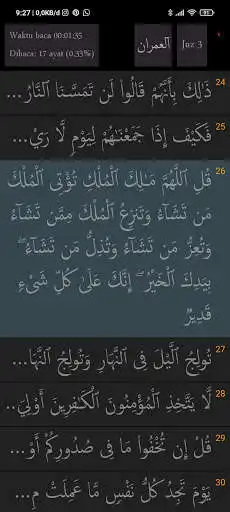 9:27 | 0,0KB/d
Waktu baca 00:01:35
Dibaca: 17 ayat (0.33%)
آلعمران
Juz 3
24
ذَٰلِكَ بِأَنَّهُمْ قَالُوا۟ لَن تَمَسَّنَا ٱلنَّارُ...
25
فَكَيْفَ إِذَا جَمَعْنَـٰهُمْ لِيَوْمٍ لَّا رَيْ...
26
قُلِ ٱللَّهُمَّ مَـٰلِكَ ٱلْمُلْكِ تُؤْتِى ٱلْمُلْكَ
مَن تَشَآءُ وَتَنزِعُ ٱلْمُلْكَ مِمَّن تَشَآءُ
وَتُعِزُّ مَن تَشَآءُ وَتُذِلُّ مَن تَشَآءُ ۖ
بِيَدِكَ ٱلْخَيْرُ ۖ إِنَّكَ عَلَىٰ كُلِّ شَىْءٍ
قَدِيرٌ
27
تُولِجُ ٱلَّيْلَ فِى ٱلنَّهَارِ وَتُولِجُ ٱلنَّهَا...
28
لَّا يَتَّخِذِ ٱلْمُؤْمِنُونَ ٱلْكَـٰفِرِينَ أَوْلِيَ...
29
قُلْ إِن تُخْفُوا۟ مَا فِى صُدُورِكُمْ أَوْ...
30
يَوْمَ تَجِدُ كُلُّ نَفْسٍ مَّا عَمِلَتْ مِ...